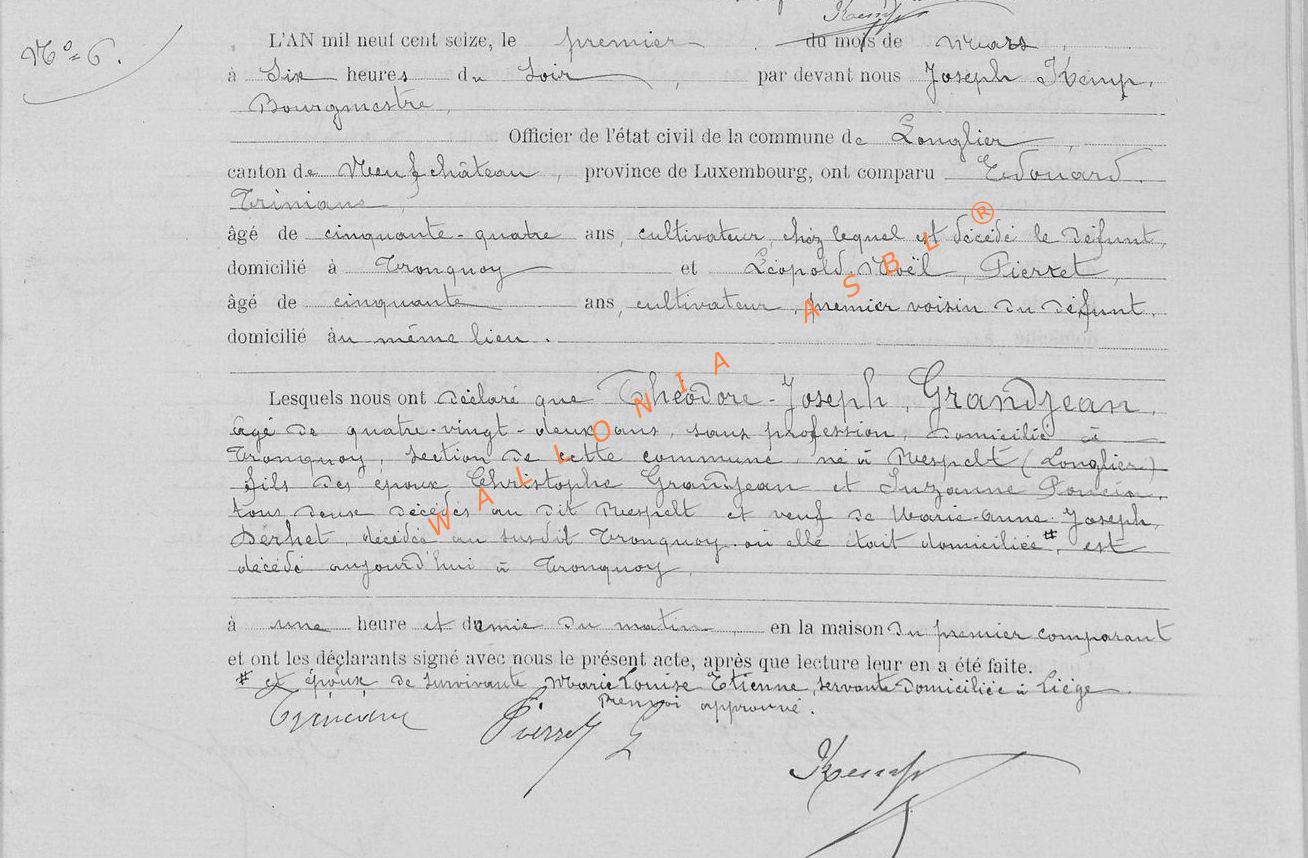 Kemp
N° 6.
L'AN mil neuf cent seize, le premier du mois de mars,
à Six heures du Soir, par devant nous Joseph Kemp,
Bourgmestre,
Officier de l'état civil de la commune de Longlier,
canton de Neufchâteau, province de Luxembourg, ont comparu Edouard
âgé de cinquante-quatre ans, cultivateur, chez lequel est décédé le défunt,
domicilié à Tronquoy et Léopold Noël Pierret,
âgé de cinquante ans, cultivateur, premier voisin du défunt,
domicilié au même lieu.
Lesquels nous ont déclaré que Théodore-Joseph Grandjean,
âgé de quatre-vingt-deux ans, sans profession, domicilié à
Tronquoy, section de cette commune, né à Respelt (Longlier)
fils des époux Christophe Grandjean et Suzanne Poncin,
tous deux décédés au dit Respelt et veuf de Marie-Anne Joseph
décédée au susdit Tronquoy où elle était domiciliée #, est
décédé aujourd'hui à Tronquoy,
à une heure et demie du matin, en la maison du premier comparant
et ont les déclarants signé avec nous le présent acte, après que lecture leur en a été faite.
# et époux de survivante Marie Louise Etienne, servante domiciliée à Liège.
Renvoi approuvé.
Pierret L
Kemp
WALLONIA ASBL ®